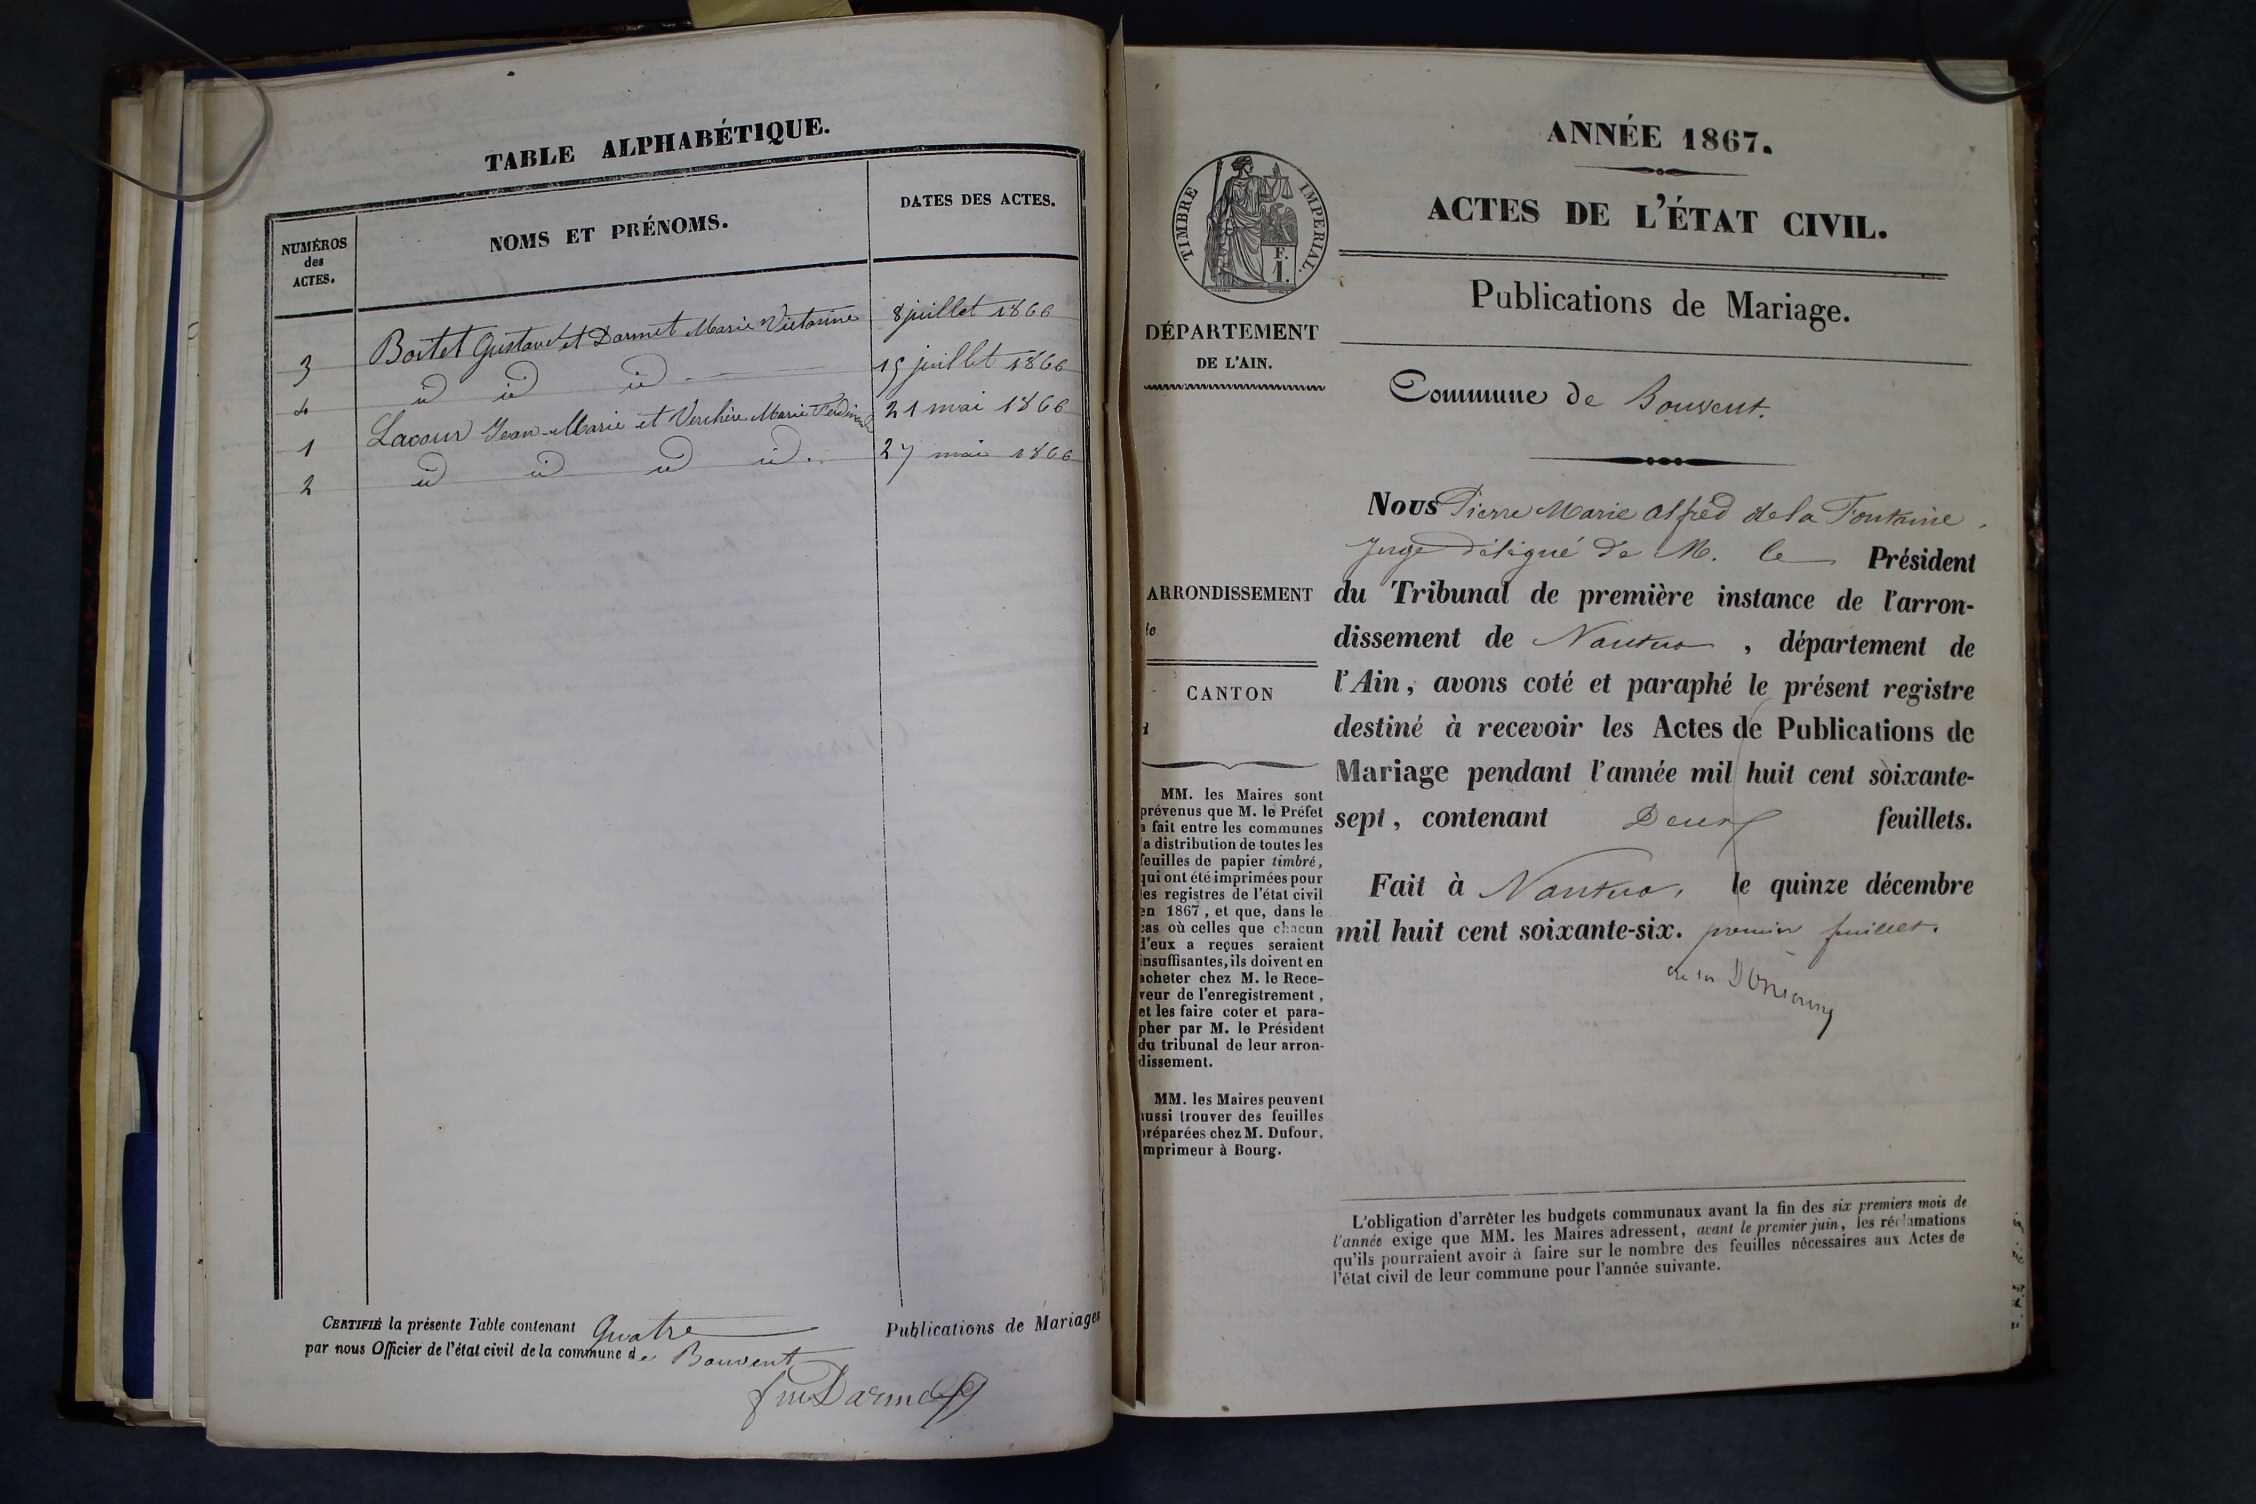 TABLE ALPHABÉTIQUE.
NUMÉROS
des
ACTES.
NOMS ET PRÉNOMS.
DATES DES ACTES.
3 Bortet Gustave et Darmet Marie Victorine 8 juillet 1866
4 id id id 15 juillet 1866
1 Lacour Jean-Marie et Verchère Marie 21 mai 1866
2 id id id id. 27 mai 1866
CERTIFIÉ la présente Table contenant Quatre Publications de Mariages
par nous Officier de l'état civil de la commune de Bouvent
ANNÉE 1867.
ACTES DE L'ÉTAT CIVIL.
TIMBRE IMPERIAL.
F. 1.
Publications de Mariage.
DÉPARTEMENT
DE L'AIN.
Commune de Bouvent.
Nous Pierre Marie Alfred de la Fontaine,
Juge délégué de M. le Président
du Tribunal de première instance de l'arron-
dissement de Nantua, département de
l'Ain, avons coté et paraphé le présent registre
destiné à recevoir les Actes de Publications de
Mariage pendant l'année mil huit cent soixante-
sept, contenant Deux feuillets.
Fait à Nantua, le quinze décembre
mil huit cent soixante-six. premier feuillet.
ARRONDISSEMENT
CANTON
MM. les Maires sont
prévenus que M. le Préfet
a fait entre les communes
la distribution de toutes les
feuilles de papier timbré,
qui ont été imprimées pour
les registres de l'état civil
en 1867, et que, dans le
cas où celles que chacun
d'eux a reçues seraient
insuffisantes, ils doivent en
acheter chez M. le Rece-
veur de l'enregistrement,
et les faire coter et para-
pher par M. le Président
du tribunal de leur arron-
dissement.
MM. les Maires peuvent
aussi trouver des feuilles
préparées chez M. Dufour,
imprimeur à Bourg.
L'obligation d'arrêter les budgets communaux avant la fin des six premiers mois de
l'année exige que MM. les Maires adressent, avant le premier juin, les réclamations
qu'ils pourraient avoir à faire sur le nombre des feuilles nécessaires aux Actes de
l'état civil de leur commune pour l'année suivante.